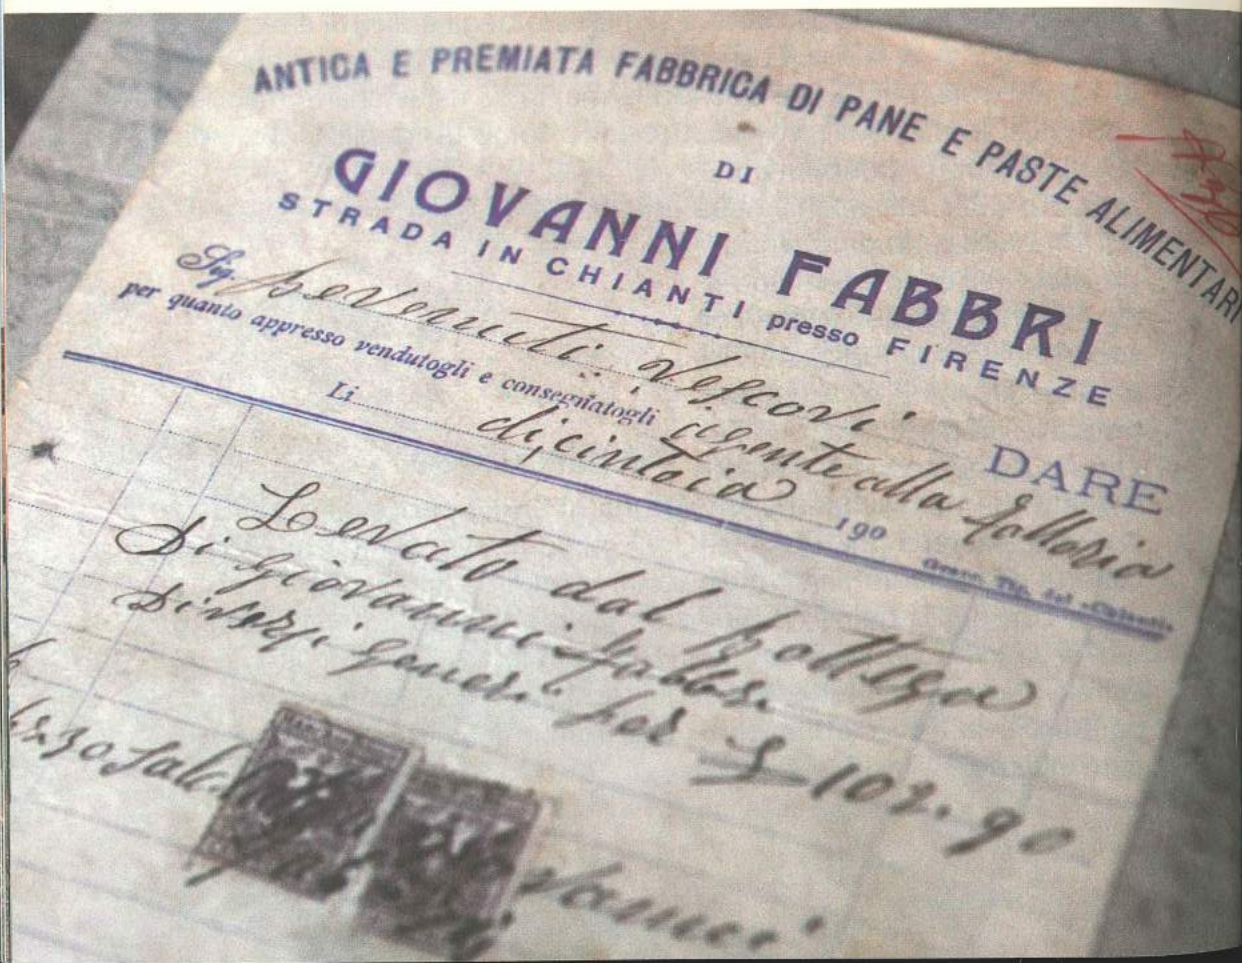 ANTICA E PREMIATA FABBRICA DI PANE E PASTE ALIMENTARI
DI
GIOVANNI FABBRI
STRADA IN CHIANTI presso FIRENZE
Sig. Benvenuti Vescovi DARE
per quanto appresso vendutogli e consegnatogli agente alla fattoria
Li di cintoia 190
Levato dal bottega
Di Giovanni Fabbri
Diversi generi per £ 102.90